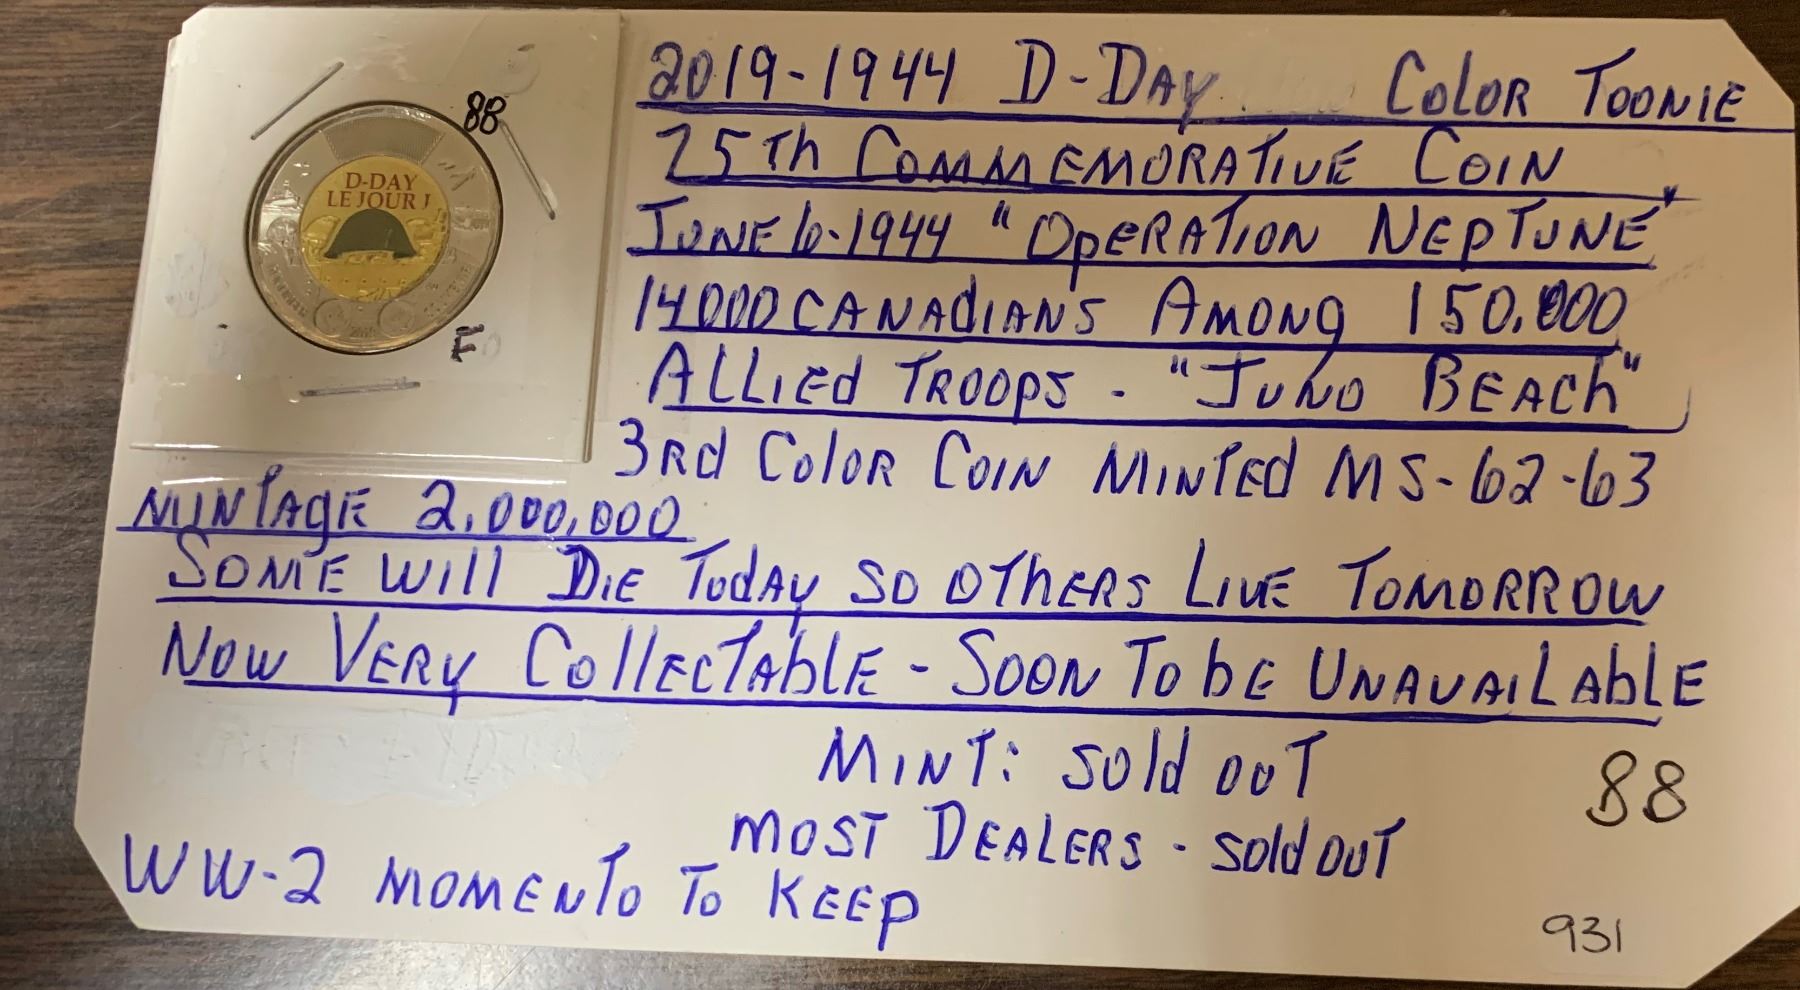 88
D-DAY
LE JOUR J
F
2019-1944 D-DAY COLOR TOONIE
75Th COMMEMORATIVE COIN
JUNE 6-1944 "OpERATION NEPTUNE"
14000 CANAdIANS AMONg 150,000
ALLIEd TROOPS - "JUNO BEACh"
3Rd COLOR COIN MINTEd MS-62-63
MINTAgE 2,000,000
SOME WIll DIE TodAy SO OThERS LIVE TOMORROW
NOW VERy COllECTAblE - SOON TO bE UNAVAILAblE
MINT: SOld OUT
88
MOST DEALERS - SOld OUT
WW-2 MOMENTO TO KEEP
931